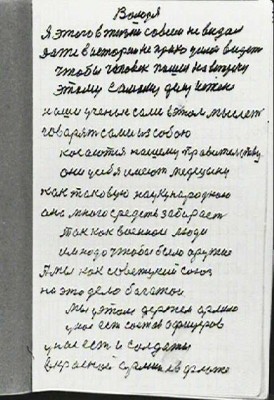 Володя
Я этого в жизни совсем не видал
Даже в истории не прошу умом видеть
Чтобы человек пошел на выручку
этому самому делу
наши ученые сами в этом мыслят
говорят сами из собою
касаются нашему правительству
они у себя имеют медецину
как таковую наукународною
она много средств забирает
Так как военном люди
им надо чтобы было оружие
А мы как советский союз
на это дело богатои
мы у этом держем армию
у нас ест состав офицеров
у нас ест и солдаты
в красной армии в флоте